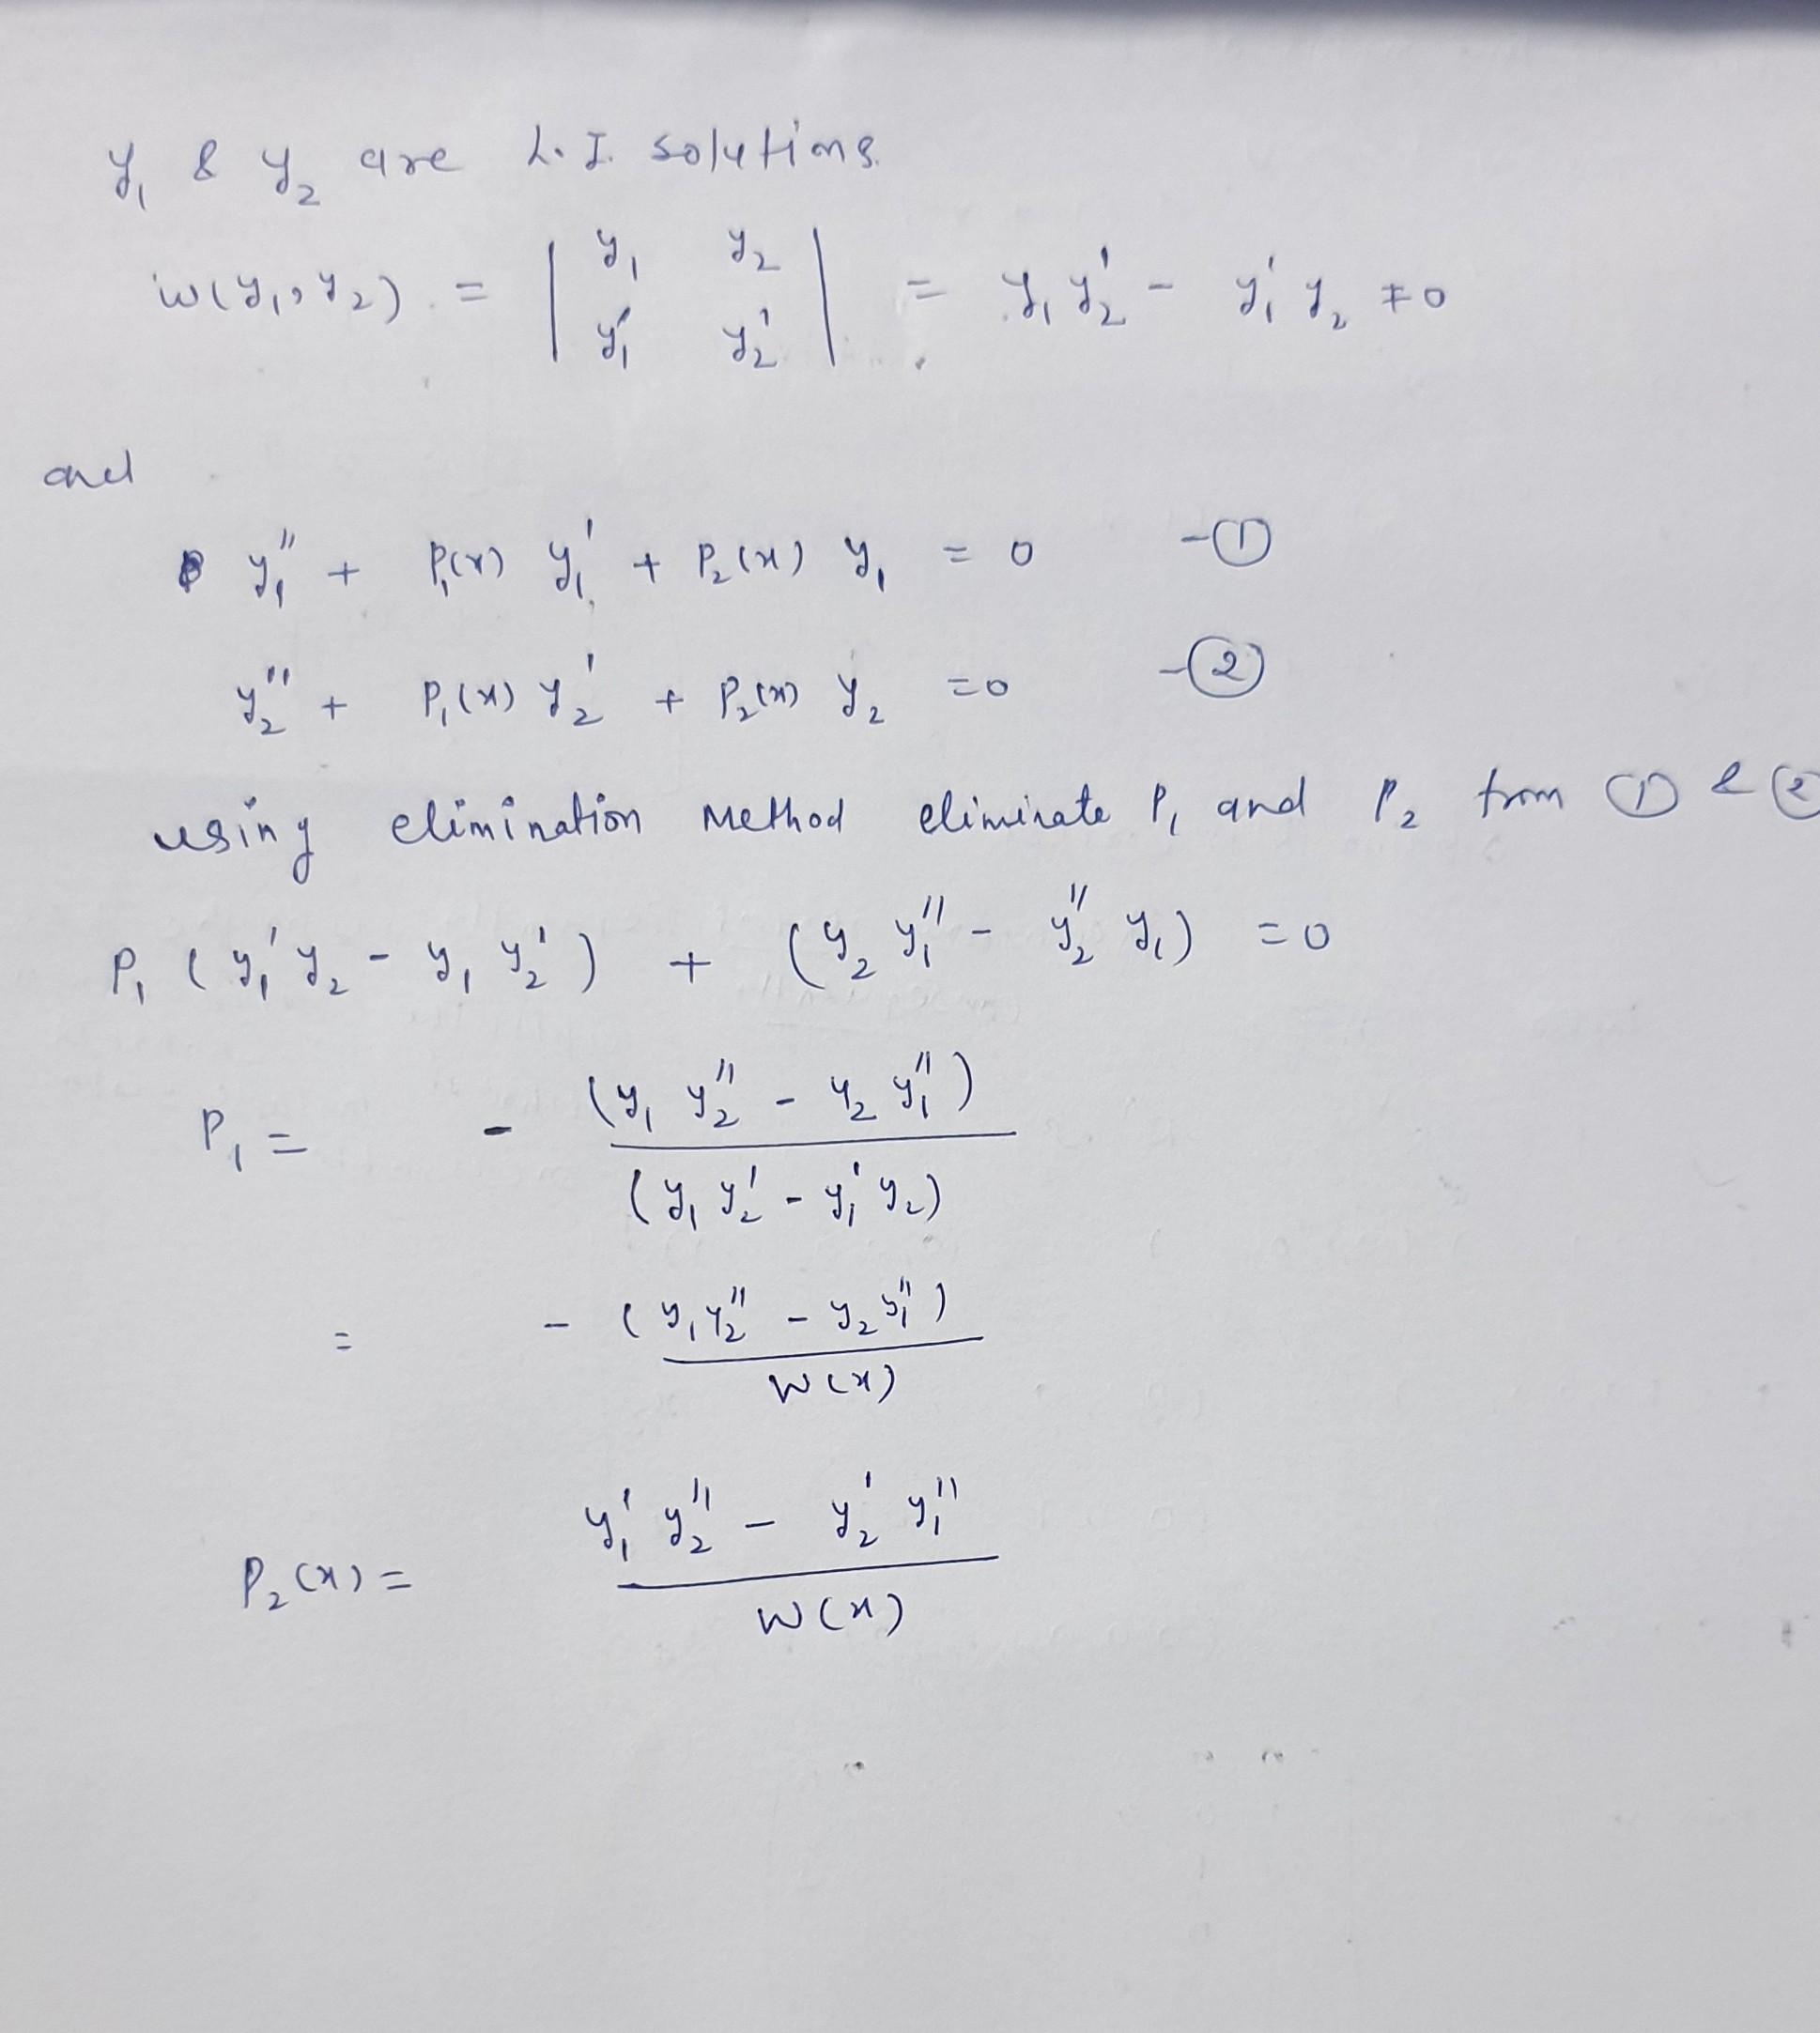 y₁ & y₂ are L.I. solutions.
W(y₁, y₂) = | y₁ y₂ | = y₁ y₂' - y₁' y₂ ≠ 0
| y₁' y₂' |
and
y₁'' + P₁(x) y₁' + P₂(x) y₁ = 0 -①
y₂'' + P₁(x) y₂' + P₂(x) y₂ = 0 -②
using elimination Method eliminate P₁ and P₂ from ① & ②
P₁ (y₁' y₂ - y₁ y₂') + (y₂ y₁'' - y₂'' y₁) = 0
P₁ = - (y₁ y₂'' - y₂ y₁'')
(y₁ y₂' - y₁' y₂)
= - (y₁ y₂'' - y₂ y₁'')
W(x)
P₂(x) = y₁' y₂'' - y₂' y₁''
W(x)